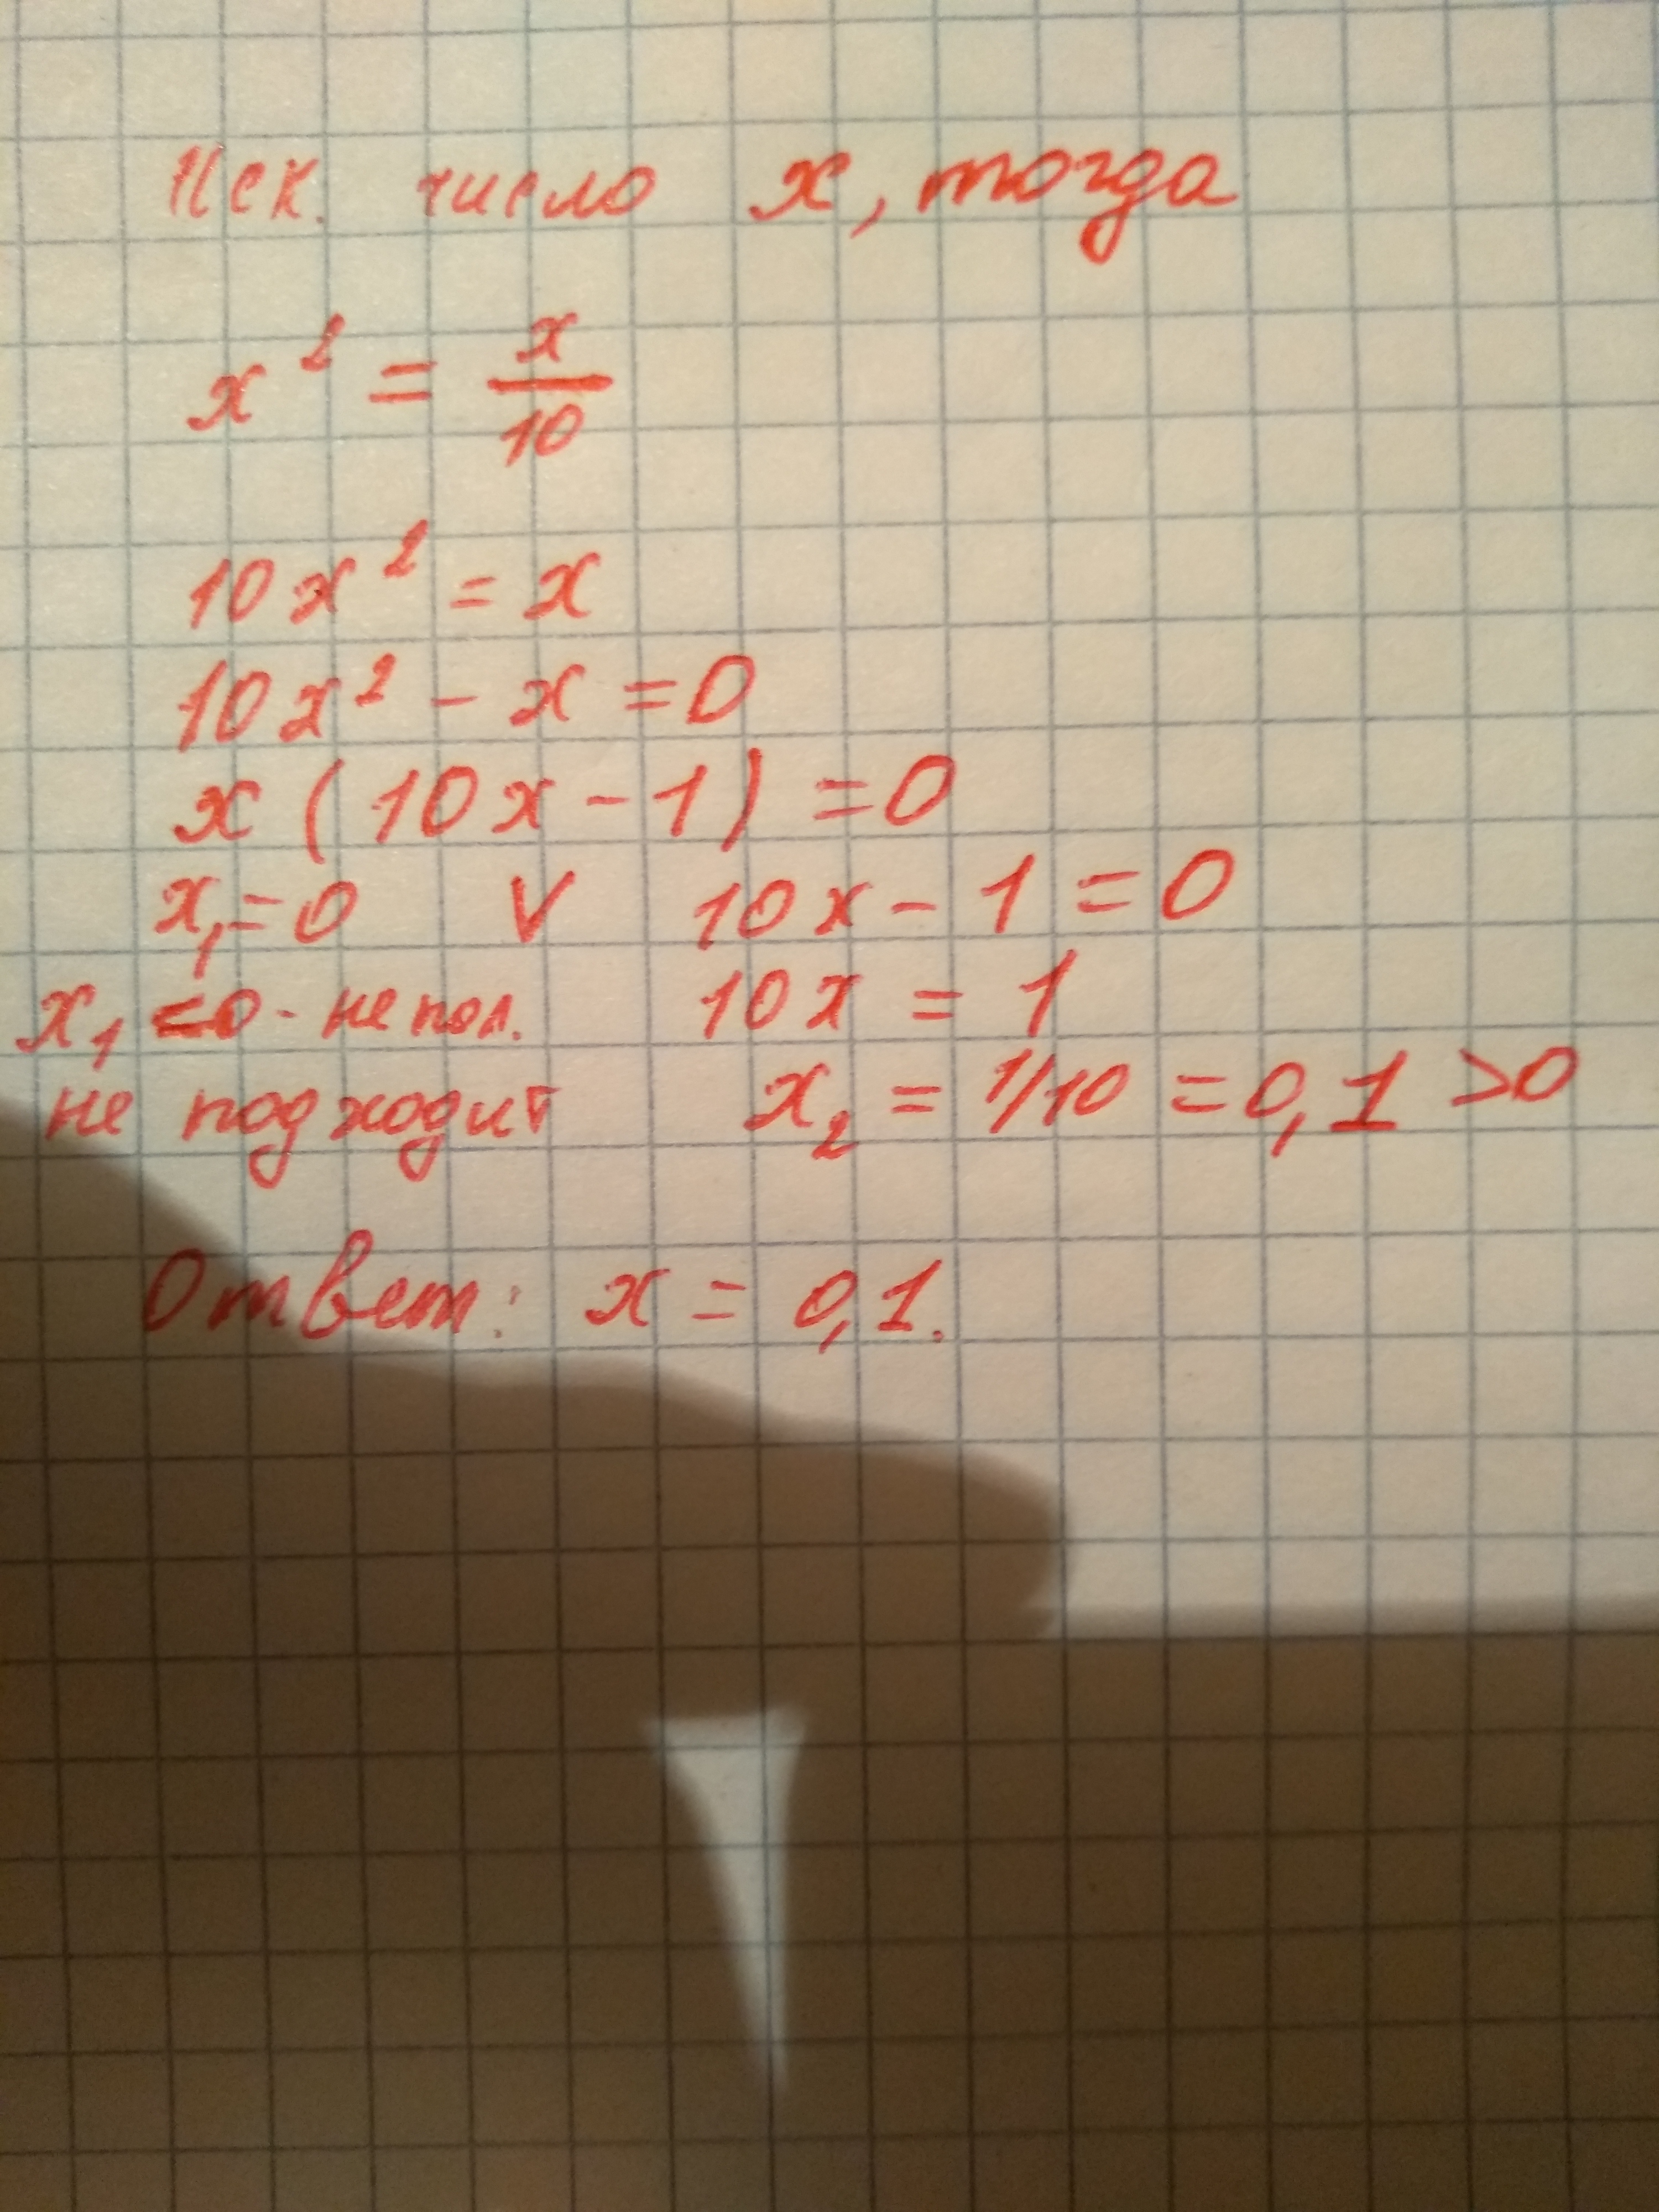 Иск. число x, тогда
x² = x/10
10x² = x
10x² - x = 0
x (10x - 1) = 0
x₁ = 0 V 10x - 1 = 0
x₁ = 0 - не пол. 10x = 1
не подходит x₂ = 1/10 = 0,1 > 0
Ответ: x = 0,1.